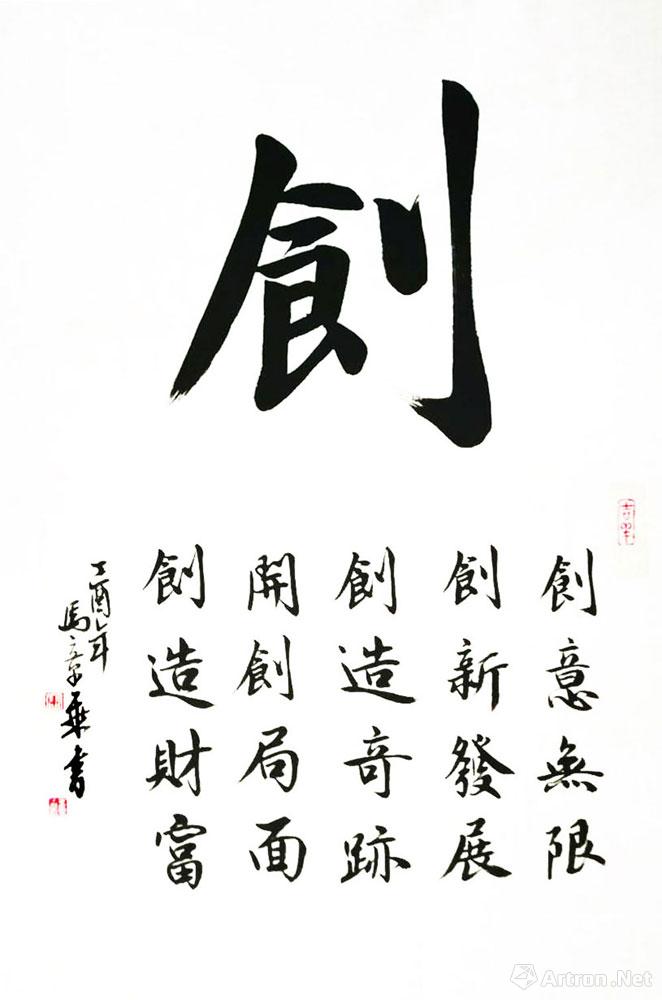 創
創意無限
創新發展
創造奇跡
開創局面
創造財富
丁酉年
馬章乘書
Artron.Net